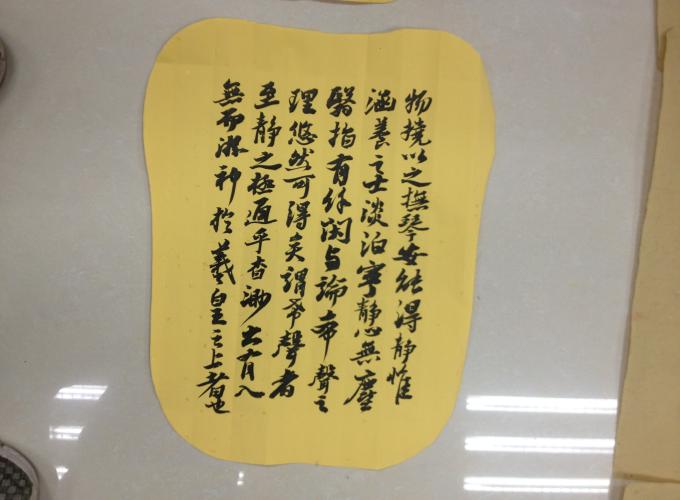 物撓以之撫琴安能得静惟
涵養之士淡泊寧静心無塵
翳指有餘閑与論希聲之
理悠然可得矣謂希聲者
至静之極通乎杳渺出有入
無而游神扵羲皇之上者也